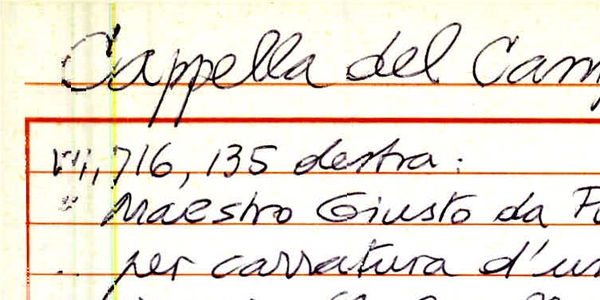 Cappella del Cam
vi, 716, 135 destra:
" Maestro Giusto da
.. per carratura d'un